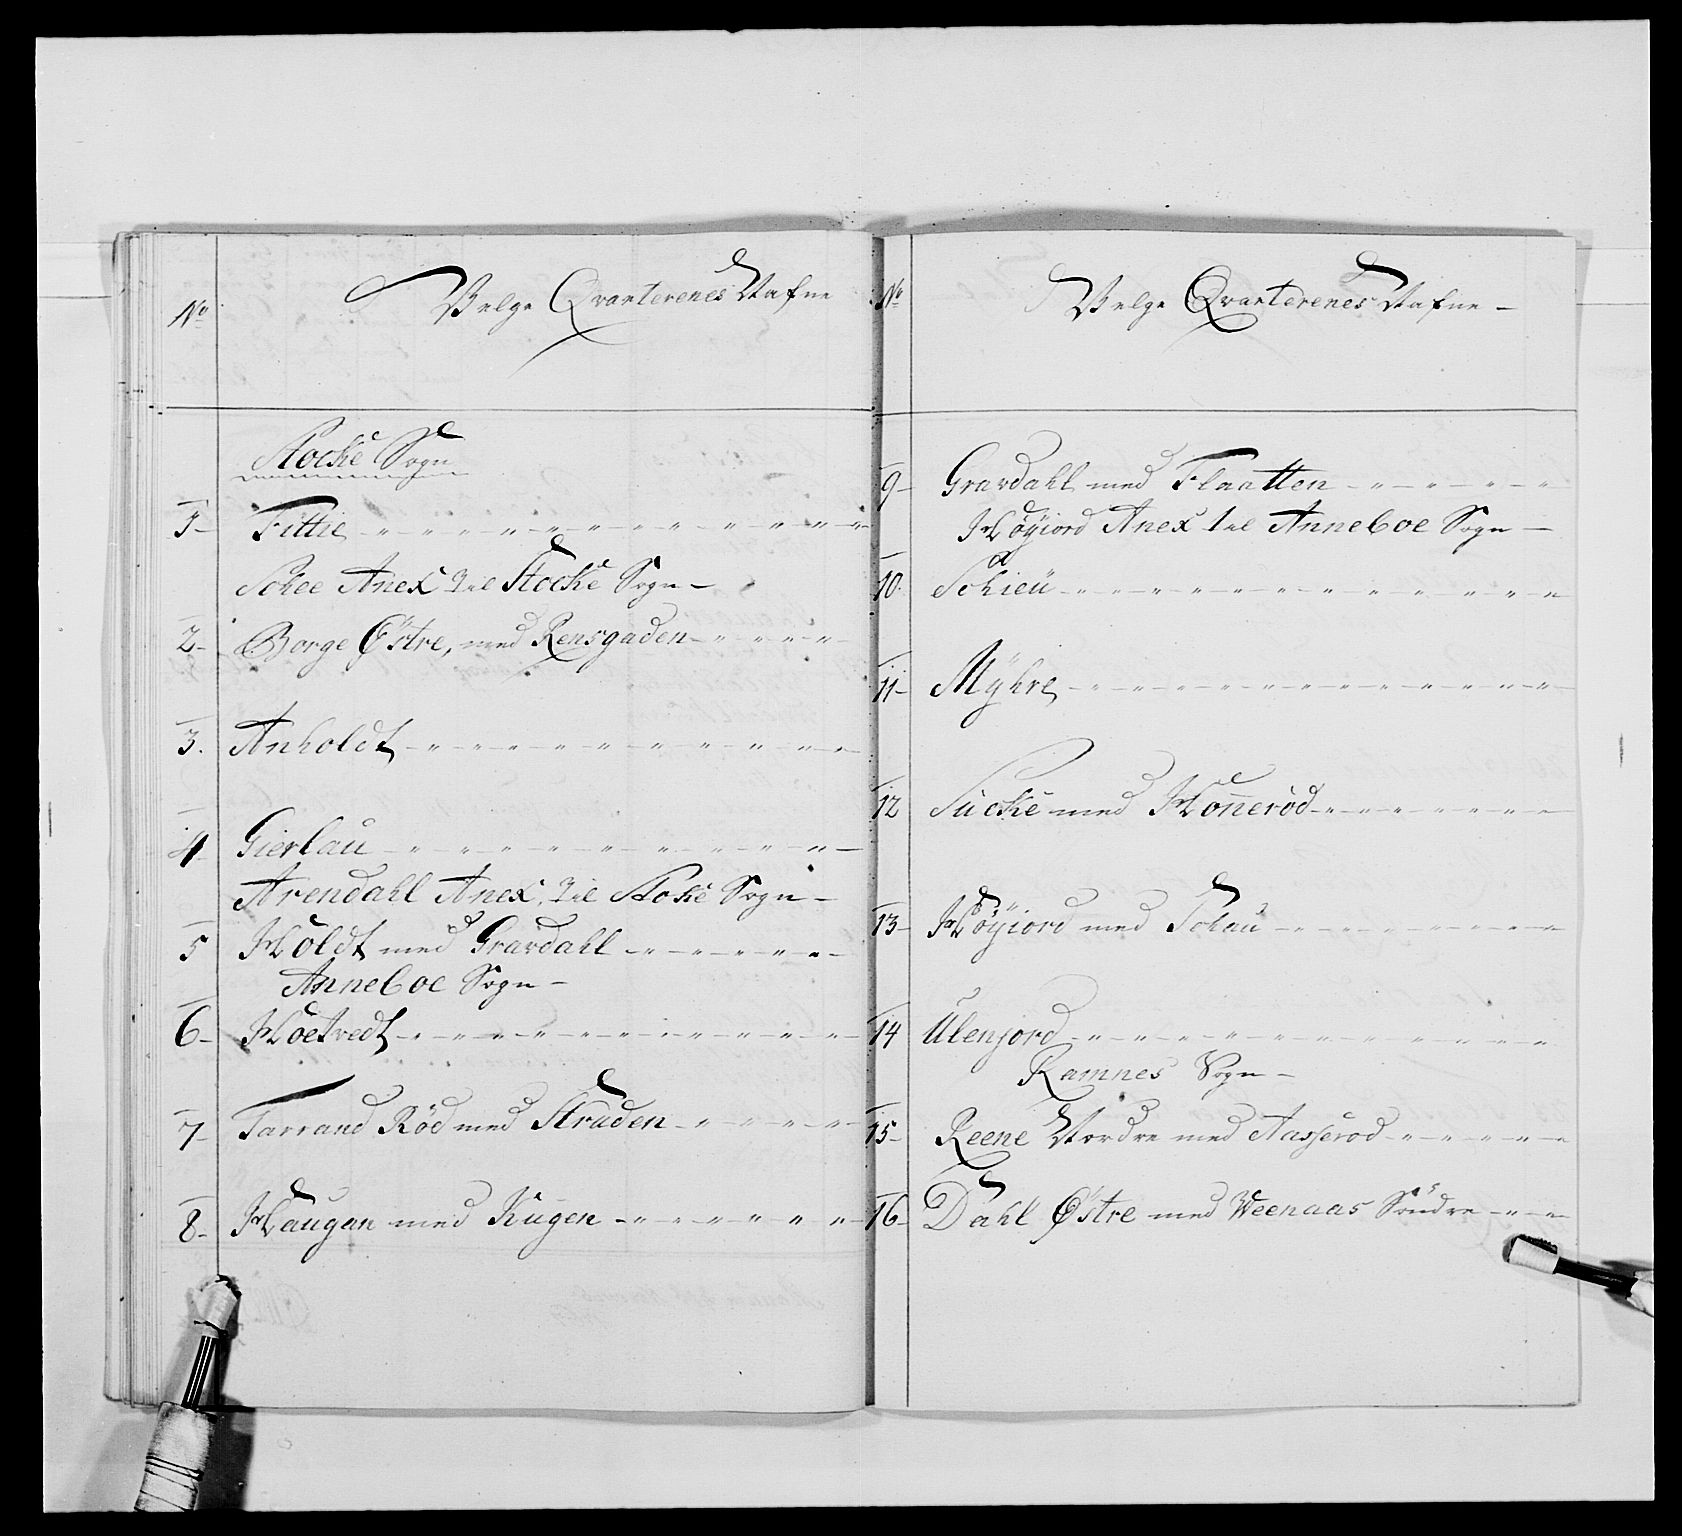 No
Velge Qvarterenes Nafne
Stocke Sogn
1- Fittie
Schee Anex Til Stocke Sogn-
2- Borge Östre, med Rensgaden
3. Anholdt
4 Gierlau
Arendahl Anex, Til Stoke Sogn-
5 Holdt med Gravdahl
Anneboe Sogn-
6- Hoetvedt
7- Tarrand Röd med Straden
8- Haugan med Kugen
No
Velge Qvarterenes Nafne-
9- Gravdahl med Flaatten
Höyiord Anex til Anneboe Sogn-
10. Schieü
11- Myhre
12 Sücke med Honneröd
13- Höyiord med Schau
14 Ulenjord
Ramnes Sogn-
15- Reene Nordre med Aasseröd
16- Dahl Östre med Weenaas Söndre